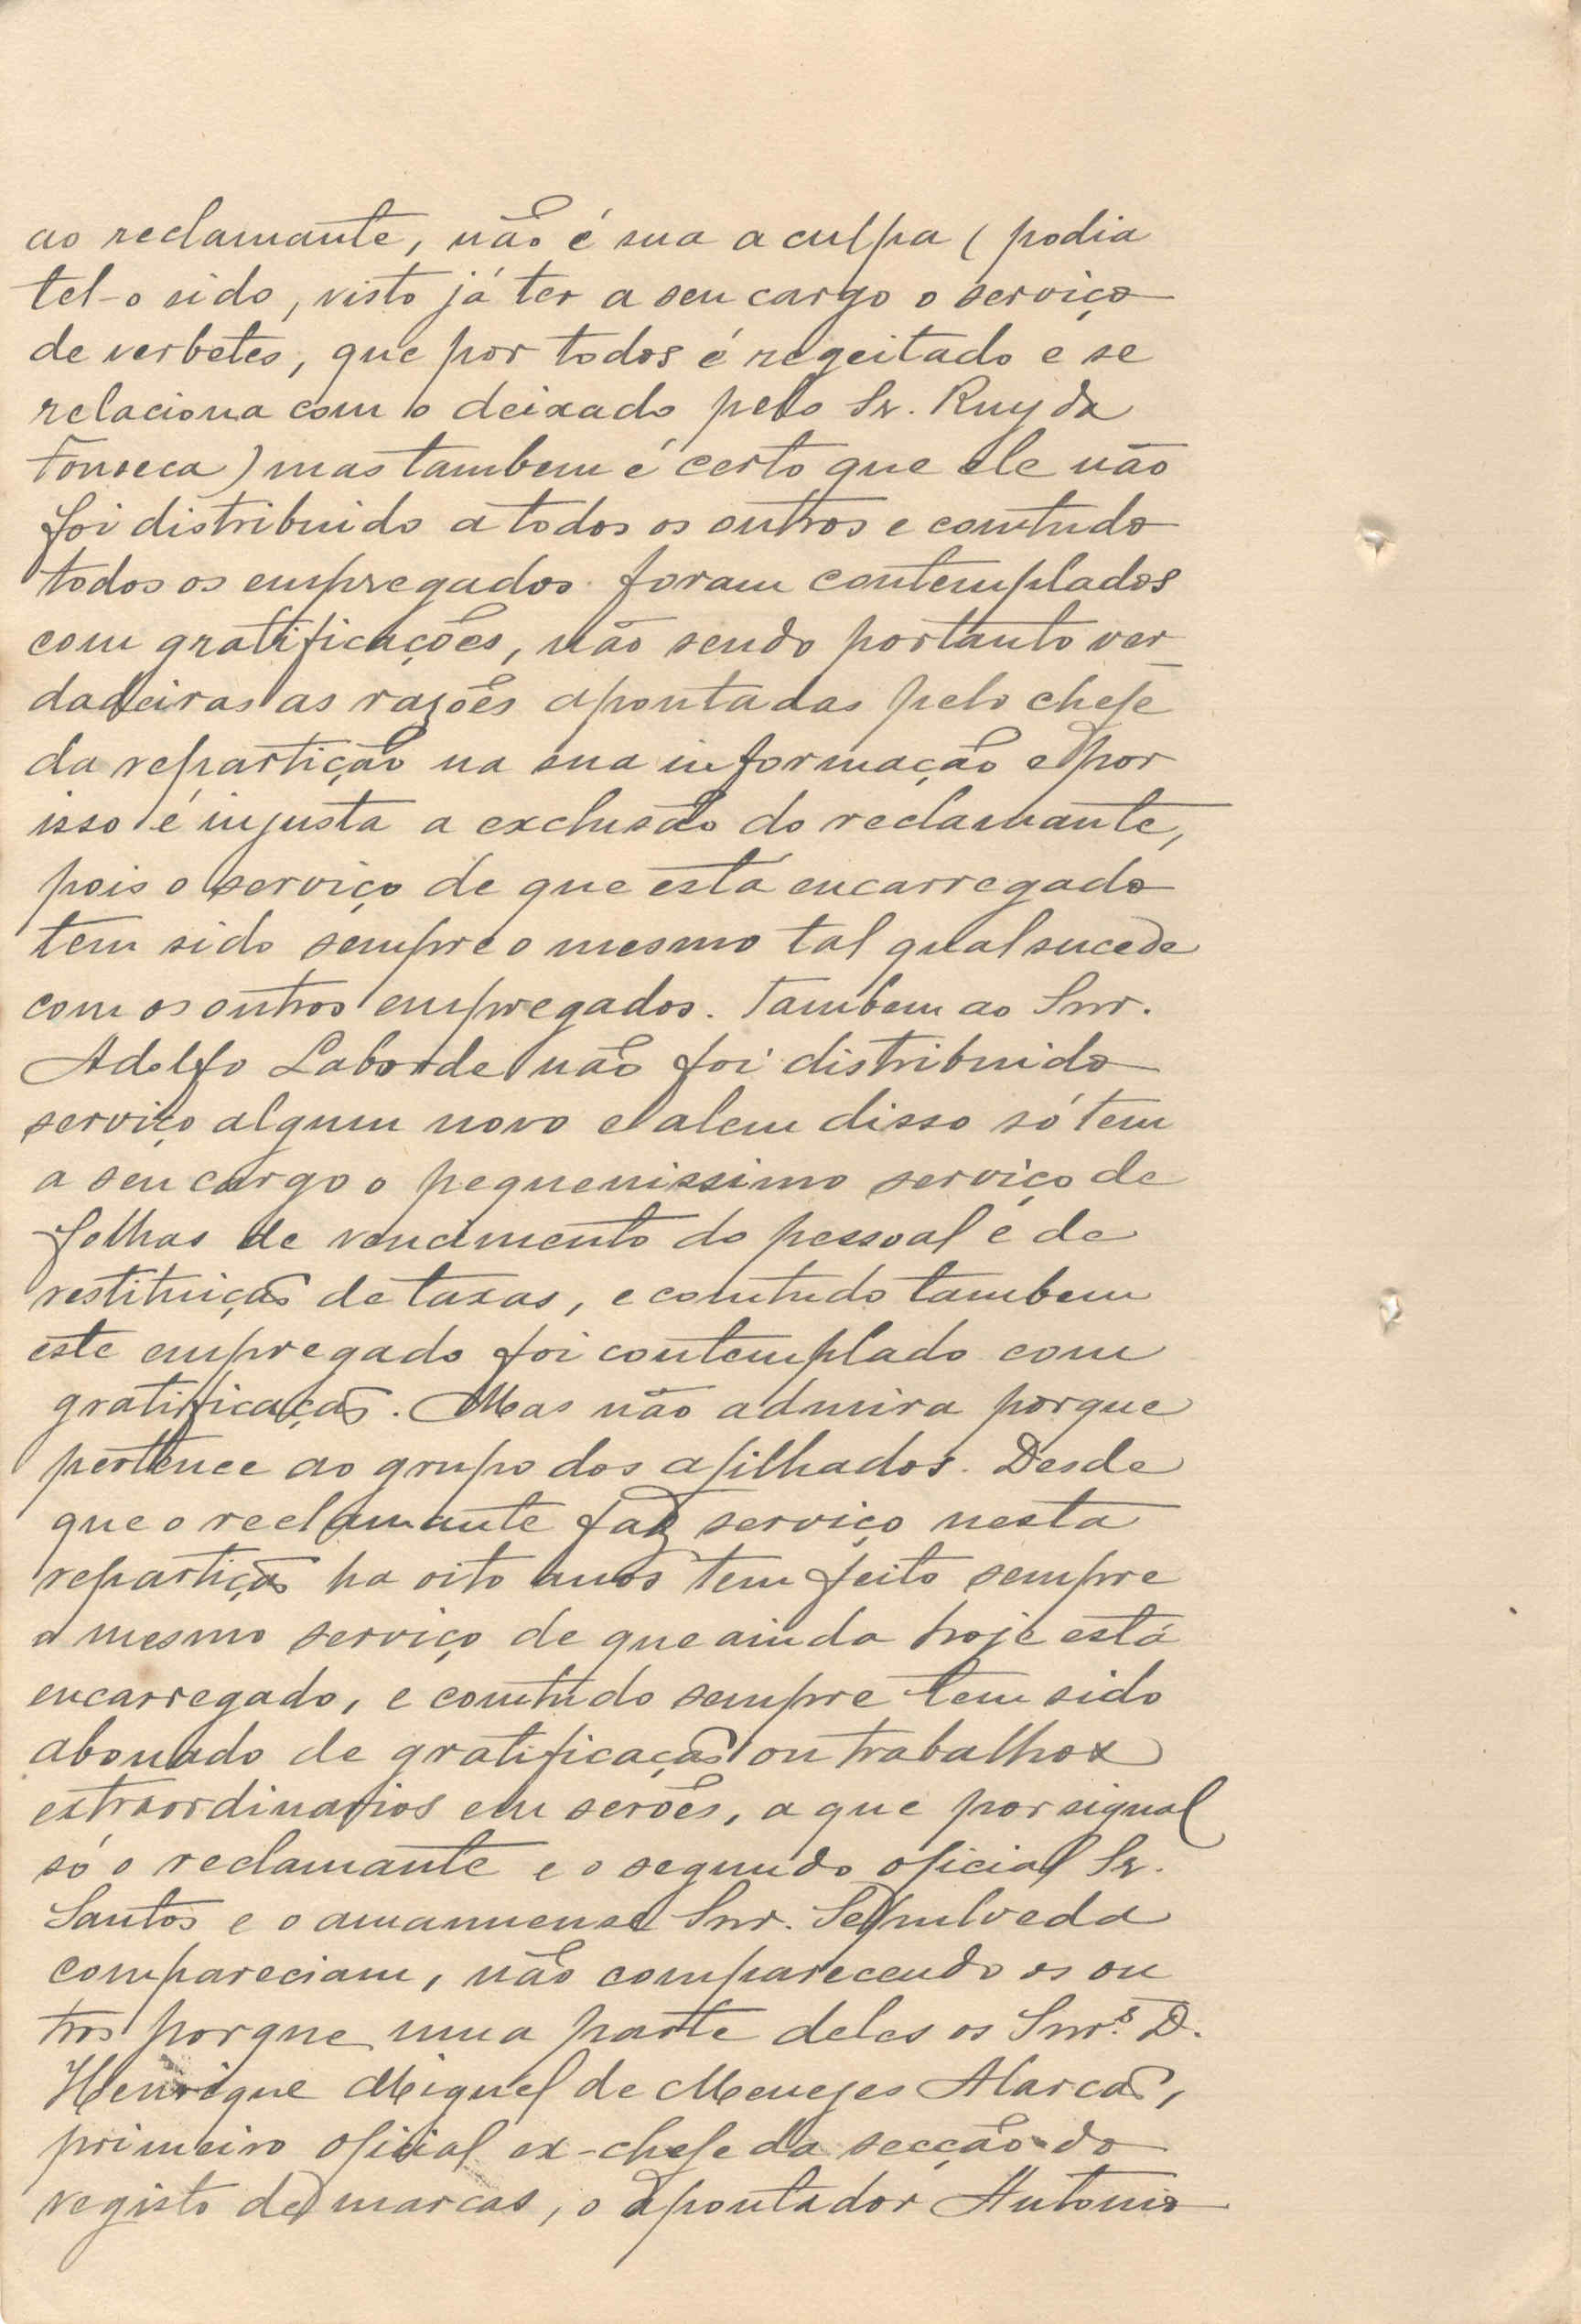 ao reclamante, não é sua a culpa (podia
tel-o sido, visto já ter a seu cargo o serviço
de verbetes, que por todos é regeitado e se
relaciona com o deixado pelo Sr. Ruy da
Fonseca) mas tambem é certo que ele não
foi distribuido a todos os outros e comtudo
todos os empregados foram contemplados
com gratificações, não sendo portanto ver
dadeiras as razões apontadas pelo chefe
da repartição na sua informação e por
isso é injusta a exclusão do reclamante,
pois o serviço de que está encarregado
tem sido sempre o mesmo tal qual sucede
com os outros empregados. Tambem ao Snr.
Adolfo Laborde não foi distribuido
serviço algum novo e alem disso só tem
a seu cargo o pequenissimo serviço de
folhas de vencimento do pessoal e de
restituição de taxas, e comtudo tambem
este empregado foi contemplado com
gratificação. Mas não admira porque
pertence ao grupo dos afilhados. Desde
que o reclamante faz serviço nesta
repartição ha oito anos tem feito sempre
o mesmo serviço de que ainda hoje está
encarregado, e comtudo sempre tem sido
abonado de gratificação ou trabalhos
extraordinarios em serões, a que por signal
só o reclamante e o segundo oficial Sr.
Santos e o amanuense Snr. Sepulveda
compareciam, não comparecendo os ou
tros porque uma parte deles os Snrs. D.
Henrique Miguel de Menezes Alarcão,
primeiro oficial ex-chefe da secção do
registo de marcas, o apontador Antonio